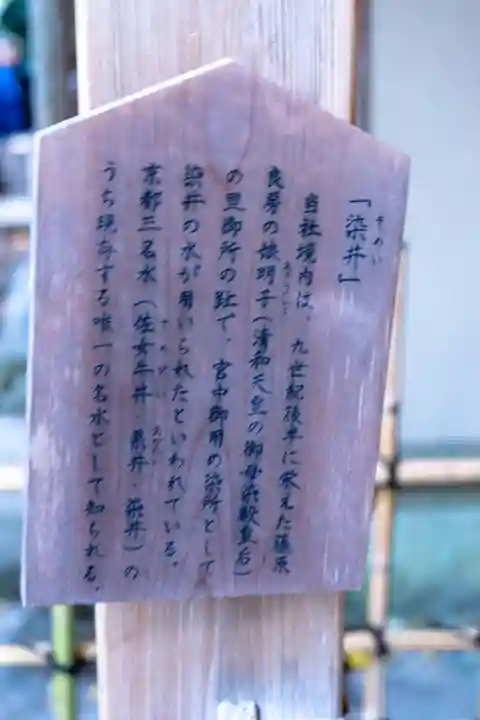 「染井」
そめい
当社境内は、九世紀後半に栄えた藤原
良房の娘明子（清和天皇の御母染殿皇后）
の里御所の趾で、宮中御用の染所として
染井の水が用いられたといわれている。
京都三名水（佐女牛井・県井・染井）の
さめがい
うち現存する唯一の名水として知られる。